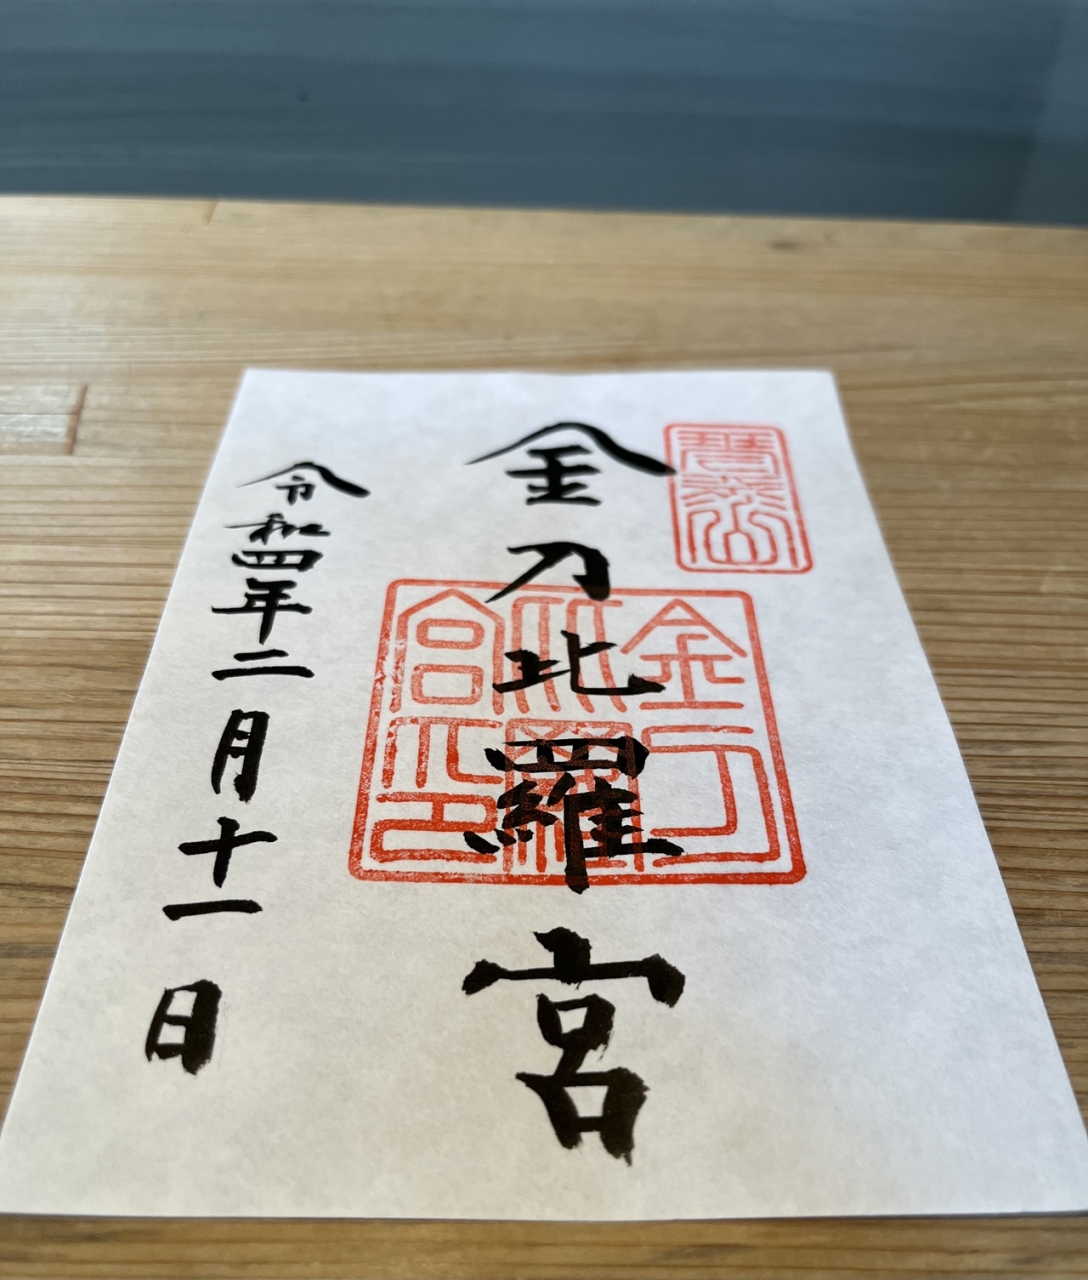 琴平山
金刀比羅宮
金刀
比羅
宮印
令和四年二月十一日